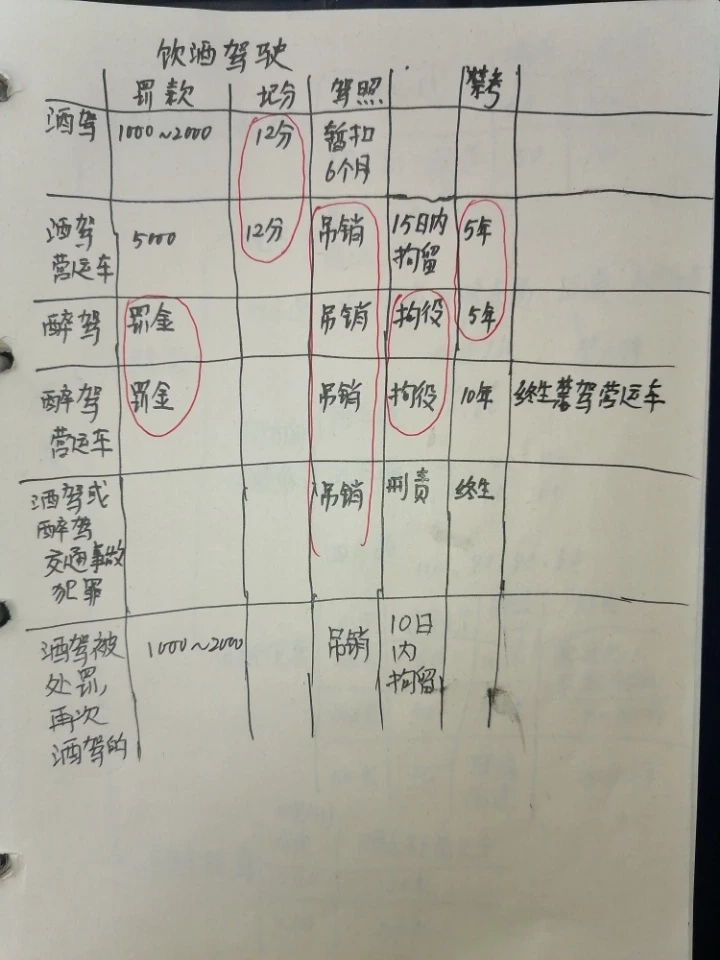 饮酒驾驶
罚款 记分 驾照 禁考
酒驾 1000~2000 12分 暂扣
6个月
酒驾
营运车 5000 12分 吊销 15日内
拘留 5年
醉驾 罚金 吊销 拘役 5年
醉驾
营运车 罚金 吊销 拘役 10年 终生禁驾营运车
酒驾或
醉驾
交通事故
犯罪 吊销 刑责 终生
酒驾被
处罚,
再次
酒驾的 1000~2000 吊销 10日
内
拘留